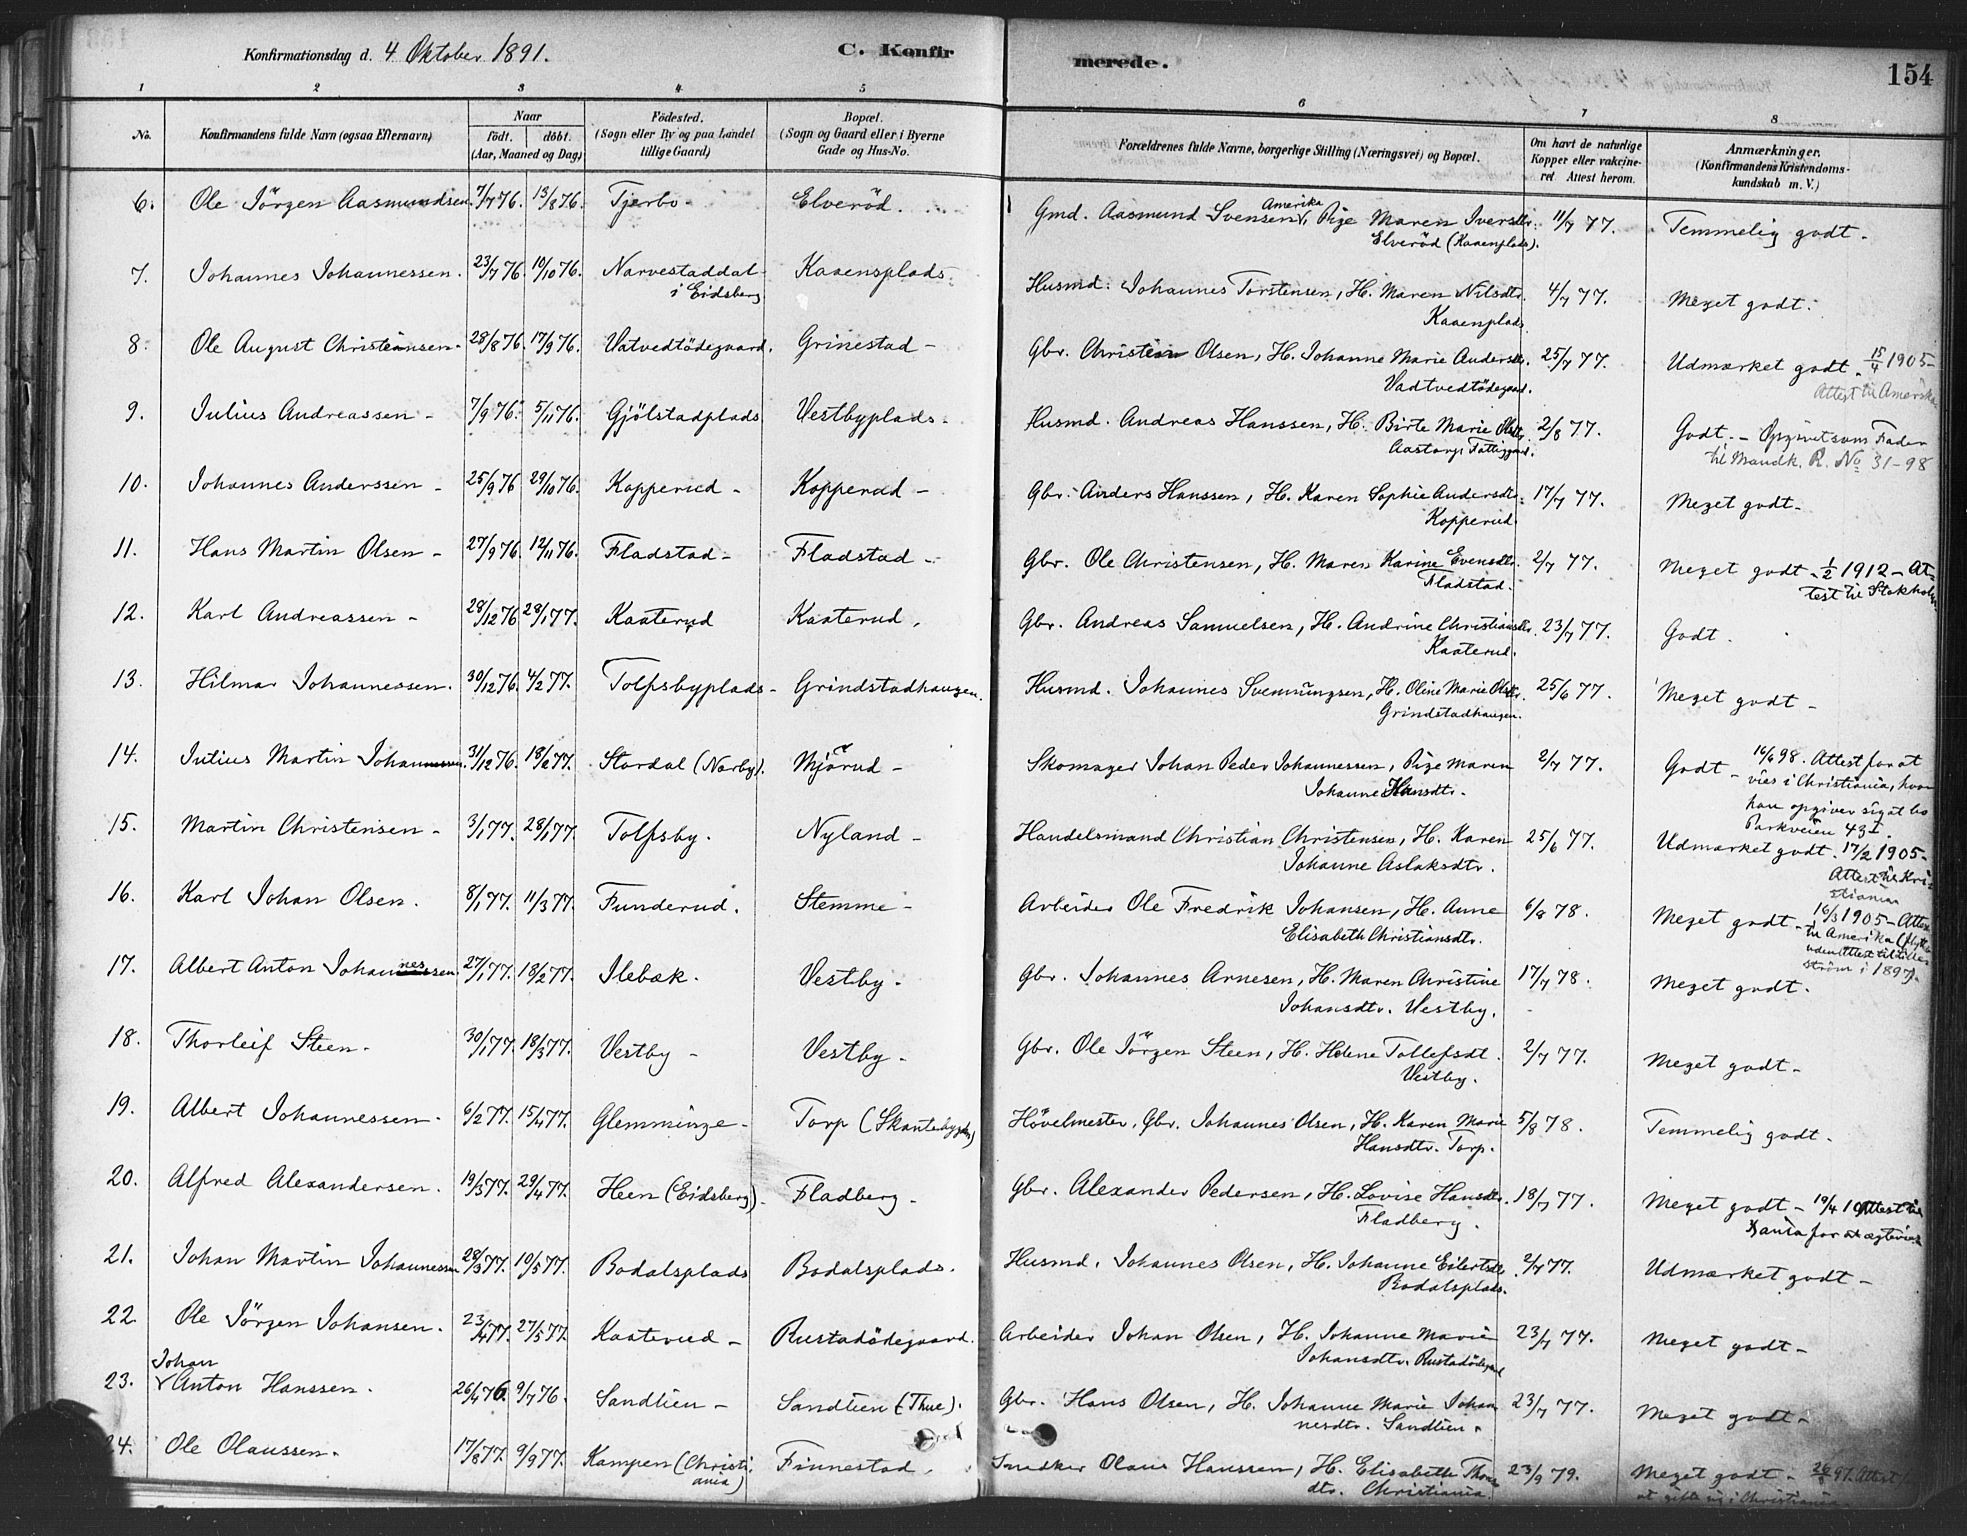 Konfirmationsdag d. 4 Oktober 1891.
C. Konfir
merede.
154
1 2 3 4 5 6 7 8
No. Konfirmandens fulde Navn (ogsaa Efternavn) Naar født. døbt. (Aar, Maaned og Dag) Fødested. (Sogn eller By og paa Landet tillige Gaard) Bopæl. (Sogn og Gaard eller i Byerne Gade og Hus-No. Forældrenes fulde Navne, borgerlige Stilling (Næringsvei) og Bopæl. Om havt de naturlige Kopper eller vakcineret Attest herom. Anmærkninger. (Konfirmandens Kristendomskundskab m. V.)
6. Ole Jörgen Aasmundsen. 7/7 76. 13/8 76. Tjerbo- Elveröd. Gmd. Aasmund Svensen, Amerika Pige Maren Iversdtr. Elveröd (Kaaenplads). 11/7 77. Temmelig godt.
7. Johannes Johannessen. 23/7 76 10/10 76. Narvestaddal i Eidsberg Kaaensplads. Husmd. Johannes Torstensen, H. Maren Nilsdtr. Kaaenplads. 4/7 77. Meget godt.
8. Ole August Christiansen. 28/8 76. 17/9 76. Vatvedtödegaard. Grinestad- Gbr. Christian Olsen, H. Johanne Marie Andersdtr. Vadtvedtödegaard. 25/7 77. Udmærket godt. 15/4 1905- Attest til Amerika.
9. Julius Andreassen- 7/9 76. 5/11 76. Gjölstadplads Vestbyplads. Husmd. Andreas Hanssen, H. Birte Marie Olsdtr. Aastorp Fattiggaard. 2/8 77. Godt. - Opgivet som Fader til Mandk. R. No 31-98
10. Johannes Anderssen- 25/9 76 29/10 76. Kopperud- Kopperud- Gbr. Anders Hanssen, H. Karen Sophie Andersdtr. Kopperud. 17/7 77. Meget godt-
11. Hans Martin Olsen- 27/9 76. 12/11 76. Fladstad- Fladstad- Gbr. Ole Christensen, H. Maren Karine Evensdtr. Fladstad. 2/7 77. Meget godt. 1/2 1912- Attest til Stokholm
12. Karl Andreassen- 28/12 76 28/1 77. Kaaterud Kaaterud. Gbr. Andreas Samuelsen, H. Andrine Christiansdtr. Kaaterud. 23/7 77. Godt.
13. Hilmar Johannessen. 30/12 76. 4/2 77. Tolfsbyplads- Grindstadhaugen. Husmd. Johannes Svennungsen, H. Oline Marie Olsdtr. Grindstadhaugen. 25/6 77. Meget godt-
14. Julius Martin Johannessen. 31/12 76. 18/2 77. Stordal (Narby). Mjørud- Skomager Johan Peder Johannessen, Pige Maren Johanne Hansdtr. 2/7 77. Godt- 16/6 98. Attest for at vies i Christiania, hvor han opgiver sig at bo Parkveien 43 I.
15. Martin Christensen- 3/1 77. 28/1 77. Tolfsby. Nyland- Handelsmand Christian Christensen, H. Karen Johanne Aslaksdtr. 25/6 77. Udmærket godt. 17/2 1905- Attest til Kristiania
16. Karl Johan Olsen. 8/1 77. 11/3 77. Funderud. Stemme- Arbeider Ole Fredrik Johansen, H. Anne Elisabeth Christiansdtr. 6/8 78. Meget godt- 16/3 1905- Attest til Amerika (flyttede uden Attest til Lillestrøm i 1897).
17. Albert Anton Johannessen 27/1 77. 18/2 77. Ilebæk. Vestby. Gbr. Johannes Arnesen, H. Maren Christine Johansdtr. Vestby. 17/7 78. Meget godt.
18. Thorleif Steen. 30/1 77. 18/3 77. Vestby- Vestby- Gbr. Ole Jörgen Steen, H. Helene Tollefsdt. Vestby. 2/7 77. Meget godt-
19. Albert Johannessen. 6/2 77. 15/4 77. Glemminge- Torp (Skantebygden) Hövelmester, Gbr. Johannes Olsen, H. Karen Marie Hansdtr. Torp. 5/8 78. Temmelig godt.
20. Alfred Alexandersen. 19/3 77. 29/4 77. Heen (Eidsberg). Fladberg- Gbr. Alexander Pedersen, H. Lovise Hansdtr. Fladberg. 18/7 77. Meget godt- 19/4 Attest til Xania for at ægtevies
21. Johan Martin Johannessen 28/3 77. 10/5 77. Bodalsplads Bodalsplads. Husmd. Johannes Olsen, H. Johanne Eilertsdtr. Bodalsplads. 2/7 77. Udmærket godt-
22. Ole Jörgen Johansen. 23/4 77. 27/5 77. Kaaterud- Rustadödegaard. Arbeider Johan Olsen, H. Johanne Marie Johansdtr. Rustadödegaard 23/7 77. Meget godt-
23. Johan Anton Hanssen. 26/4 76. 9/7 76. Sandlien- Sandlien (Thue). Gbr. Hans Olsen, H. Johanne Marie Johannesdtr. Sandlien. 23/7 77. Meget godt-
24. Ole Olaussen. 17/8 77. 9/9 77. Kampen (Christiania) Finnestad. Snedker Olaus Hanssen, H. Elisabeth dtr. Christiania. 23/9 79. Meget godt- 26/8 97. Attest at gifte sig i Christiania